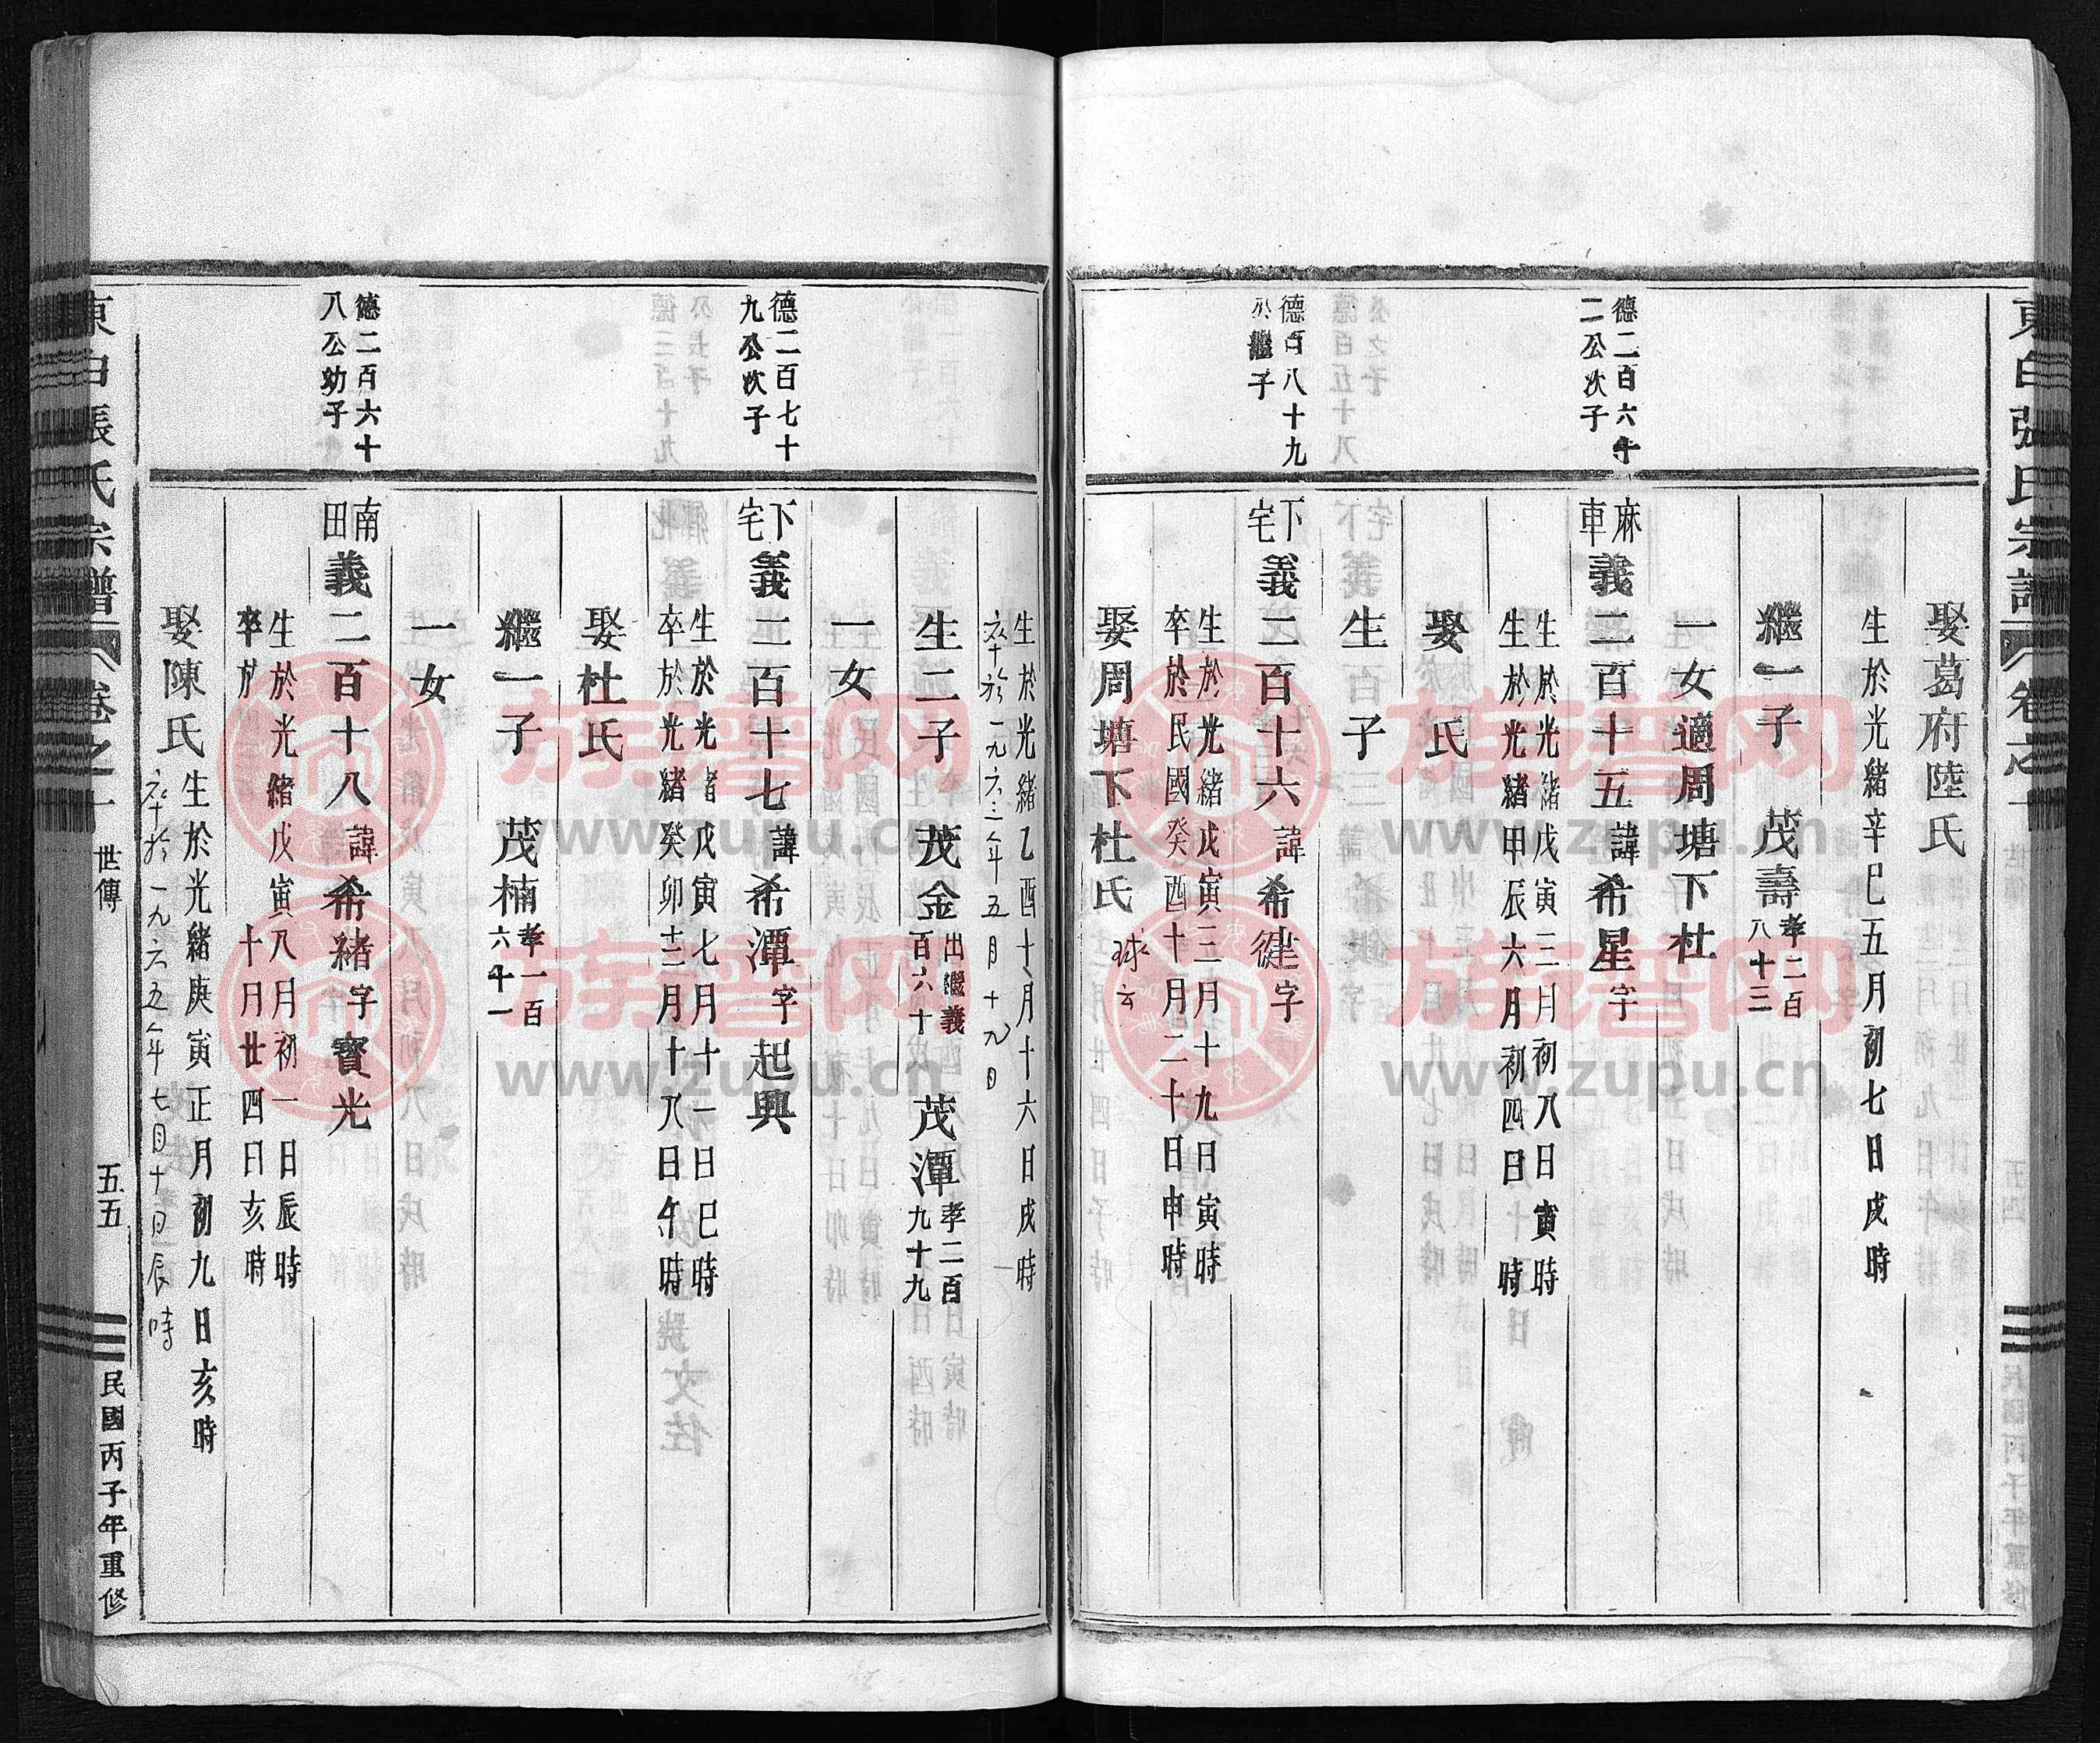 東白張氏宗譜 卷之一
娶葛府陸氏
生於光緒辛巳五月初七日戌時
繼一子 茂壽 孝二百八十三
一女適周塘下杜
德二百六十二公次子
麻車義二百十五諱希星字
生於光緒戊寅三月初八日寅時
生於光緒甲辰六月初四日 時
娶 氏
生 子
德百八十九公繼子
下宅義二百十六諱希健字
生於光緒戊寅三月十九日寅時
卒於民國癸酉十月二十日申時
娶周塘下杜氏 球云
生於光緒乙酉十月十六日戌時
卒於一九六三年五月十九日
生二子 茂金 出繼義百六十 茂潭 孝二百九十九
一女
德二百七十九公次子
下宅義二百十七諱希潭字起興
生於光緒戊寅七月十一日巳時
卒於光緒癸卯十二月十八日午時
娶杜氏
繼一子 茂楠 孝一百六十一
一女
德二百六十八公幼子
南田義二百十八諱希緒字寶光
生於光緒戊寅八月初一日辰時
卒於 十月廿四日亥時
娶陳氏生於光緒庚寅正月初九日亥時
卒於一九六五年七月十日辰時
東白張氏宗譜 卷之一 世傳 五五 民國丙子年重修
族譜网
www.zupu.cn
族譜网
www.zupu.cn
族譜网
www.zupu.cn
族譜网
www.zupu.cn